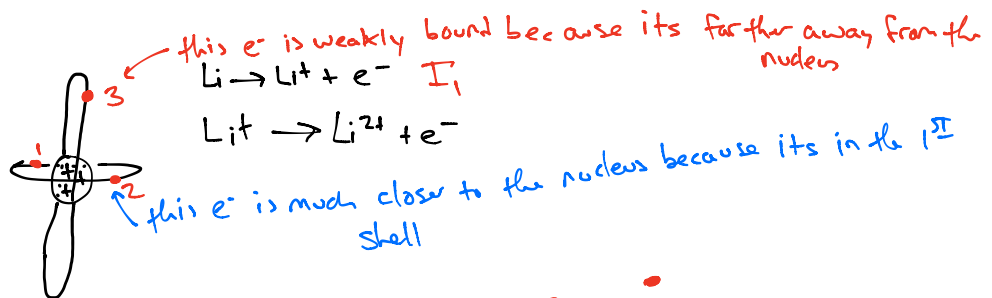 this e⁻ is weakly bound because its farther away from the
nucleus
Li → Li⁺ + e⁻ I₁
3
Li⁺ → Li²⁺ + e⁻
1
++
+
++
2
this e⁻ is much closer to the nucleus because its in the 1ST
shell